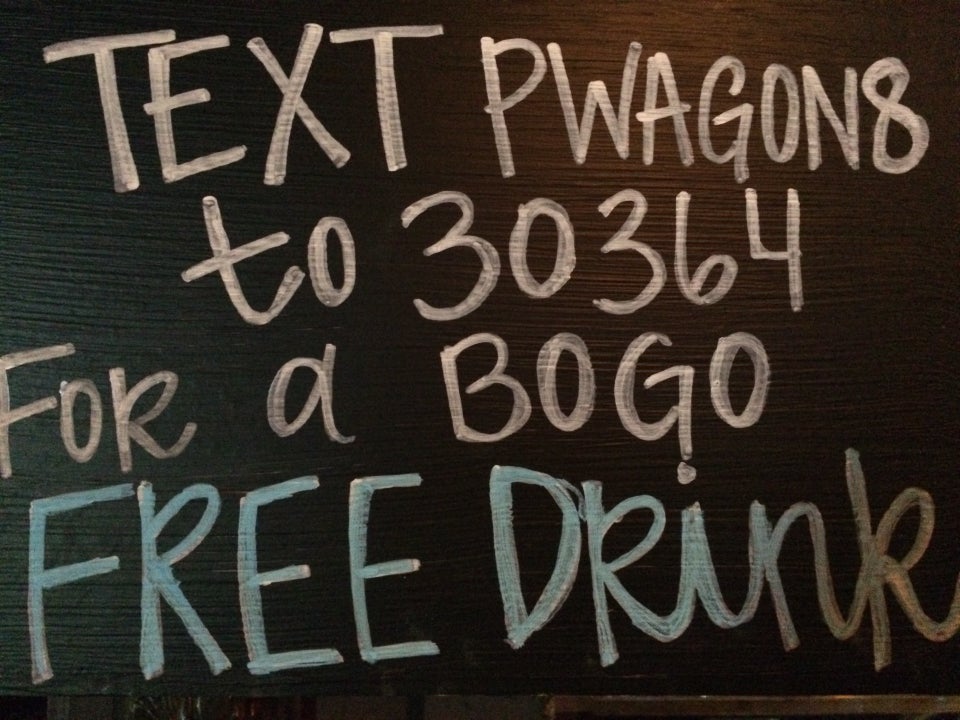 TEXT PWAGON8
to 30364
FOR a BOGO
FREE DRink